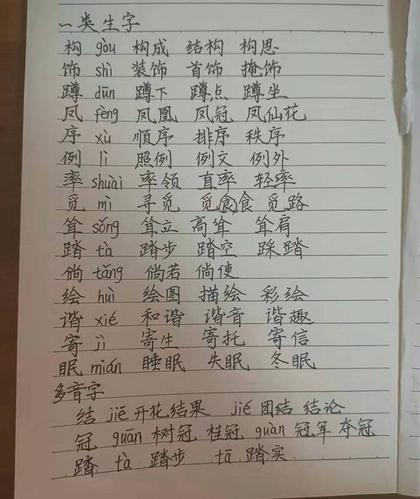 一类生字
构 gòu 构成 结构 构思
饰 shì 装饰 首饰 掩饰
蹲 dūn 蹲下 蹲点 蹲坐
凤 fèng 凤凰 凤冠 凤仙花
序 xù 顺序 排序 秩序
例 lì 照例 例文 例外
率 shuài 率领 直率 轻率
觅 mì 寻觅 觅食 觅路
耸 sǒng 耸立 高耸 耸肩
踏 tà 踏步 踏空 踩踏
倘 tǎng 倘若 倘使
绘 huì 绘图 描绘 彩绘
谐 xié 和谐 谐音 谐趣
寄 jì 寄生 寄托 寄信
眠 mián 睡眠 失眠 冬眠
多音字
结 jiē 开花结果 jié 团结 结论
冠 guān 树冠 桂冠 guàn 冠军 夺冠
踏 tà 踏步 tā 踏实